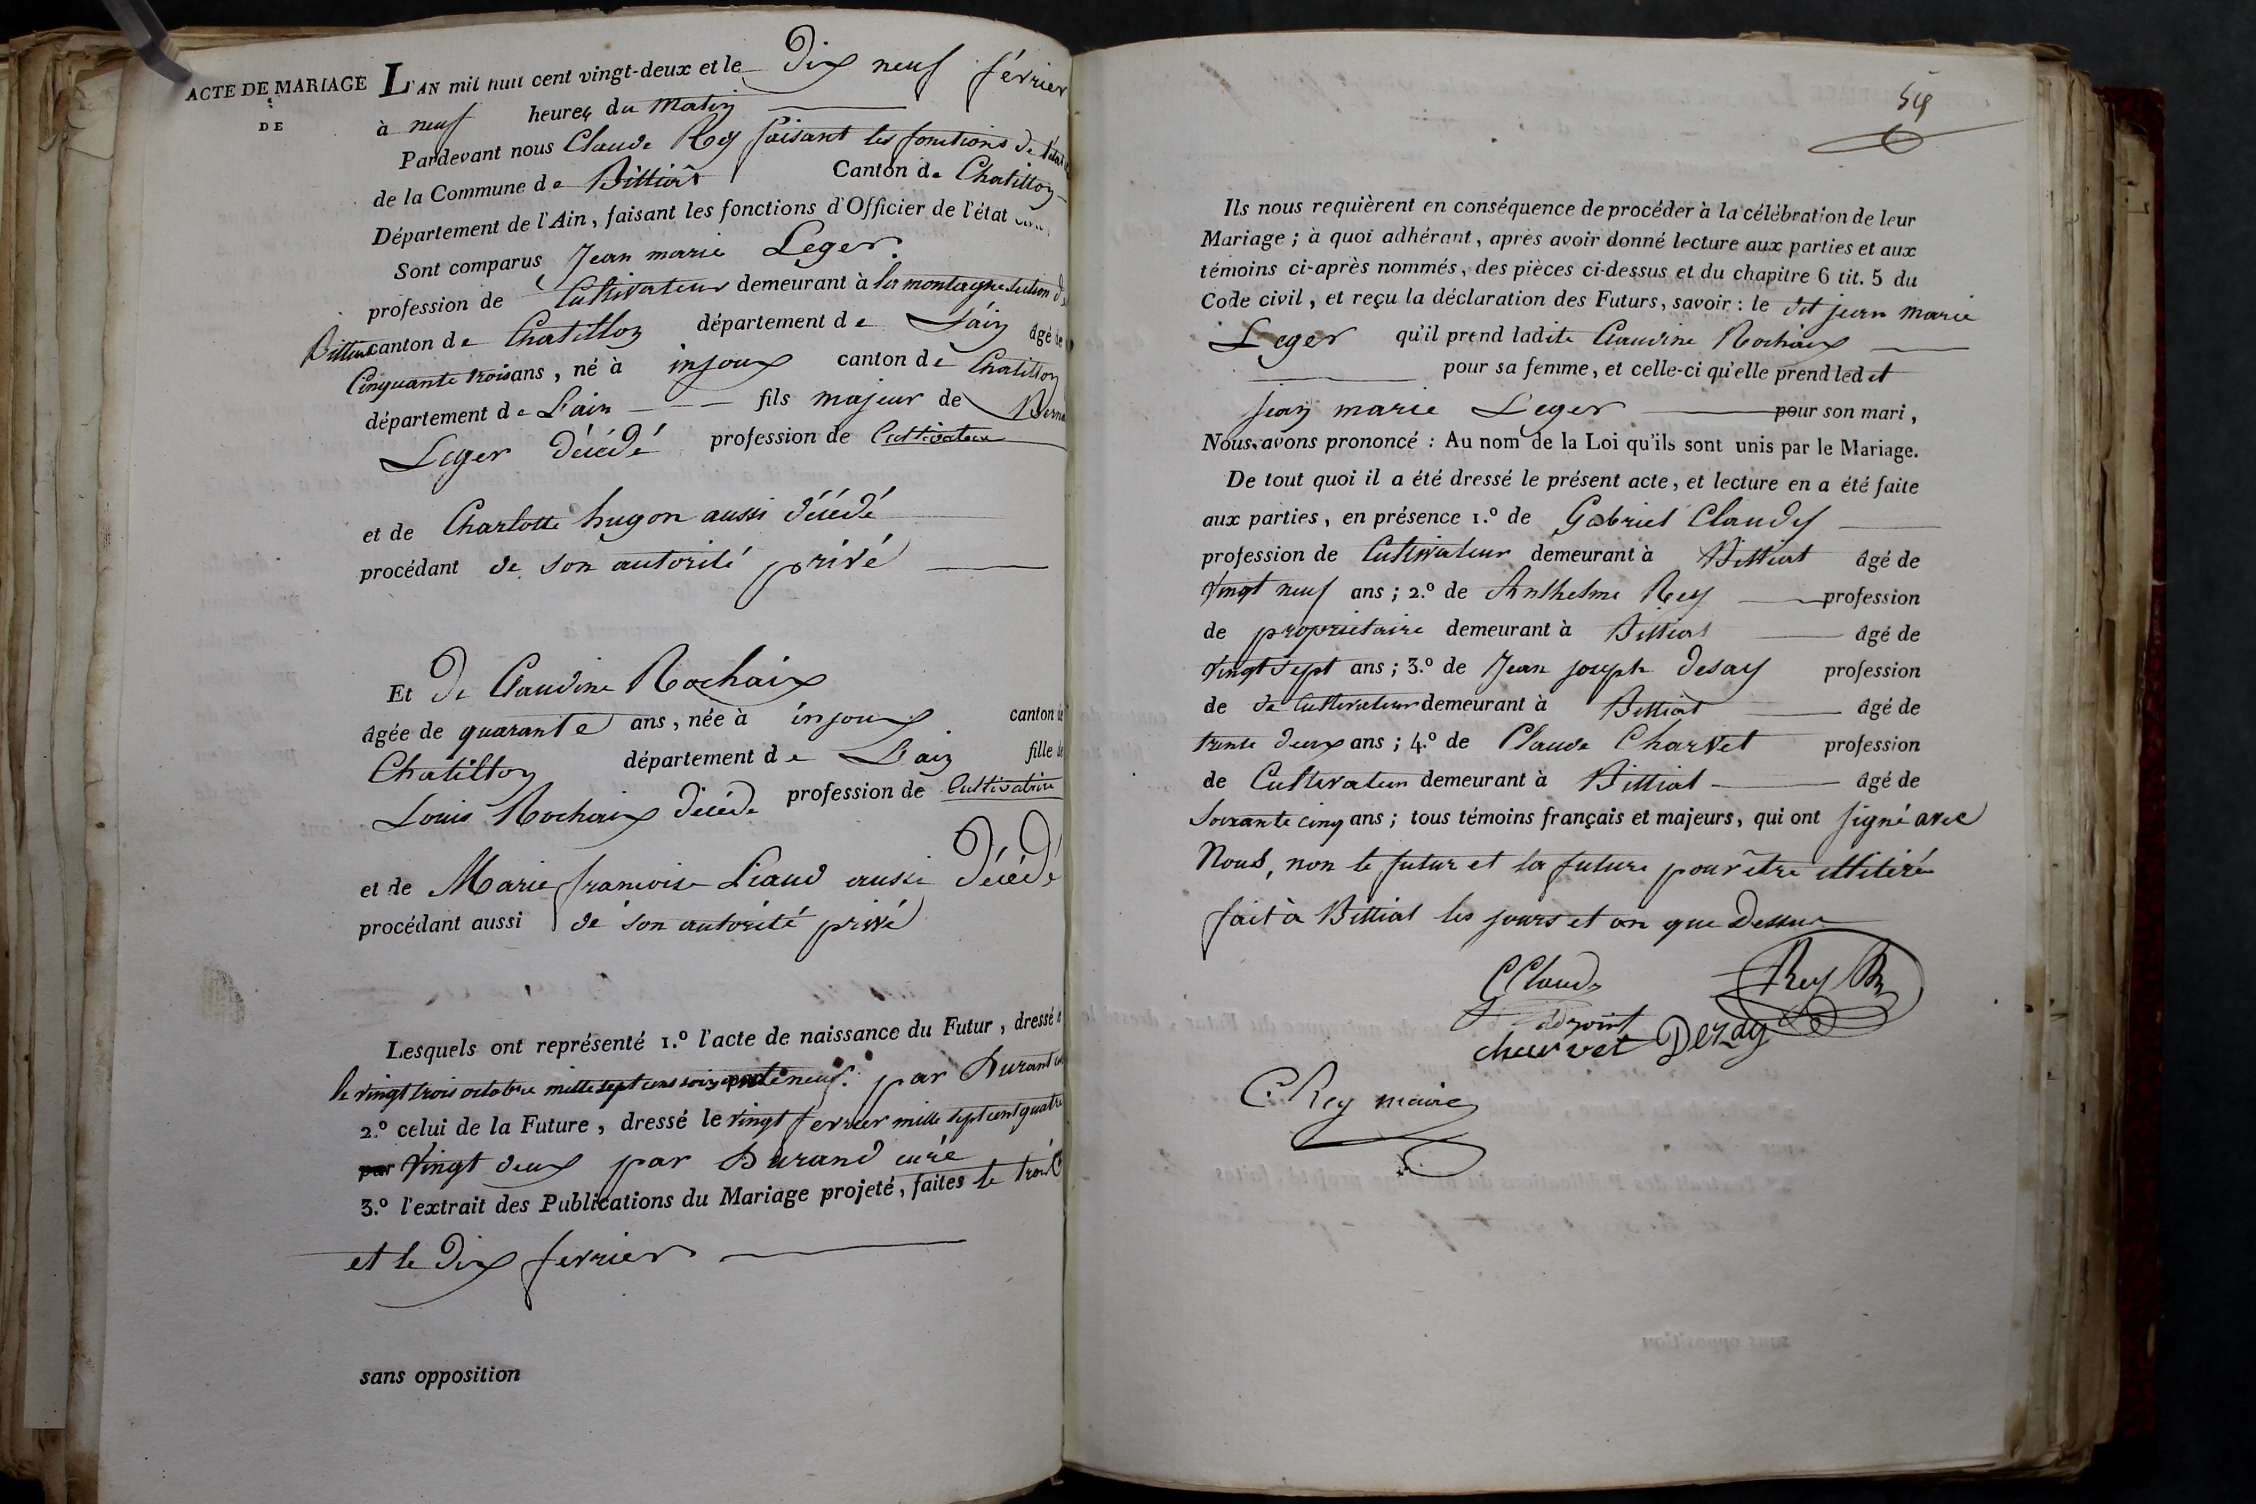 ACTE DE MARIAGE
DE
L'AN mil huit cent vingt-deux et le Dix neuf février
à neuf heures du Matin
Pardevant nous Claude Rey faisant les fonctions de l'état
de la Commune de Billiat Canton de Chatillon
Département de l'Ain, faisant les fonctions d'Officier de l'état
Sont comparus Jean marie Leger
profession de Cultivateur demeurant à la montagne section de
Billiat canton de Chatillon département de L'ain âgé de
Cinquante trois ans, né à injoux canton de Chatillon
département de L'ain fils majeur de
Leger décédé profession de Cultivateur
et de Charlotte hugon aussi décédé
procédant de son autorité privé
Et De Claudine Rochaix
âgée de quarante ans, née à injoux canton de
Chatillon département de L'ain fille de
Louis Rochaix décédé profession de Cultivatrice
et de Marie francoise Liaud aussi Décédé
procédant aussi de son autorité privé
Lesquels ont représenté 1.º l'acte de naissance du Futur, dressé
le vingt trois octobre mille sept cens soixante neuf. par Durand
2.º celui de la Future, dressé le vingt fevrier mille sept cent quatre
par Vingt deux par Durand curé
3.º l'extrait des Publications du Mariage projeté, faites le trois
et le Dix fevrier
sans opposition
54
Ils nous requièrent en conséquence de procéder à la célébration de leur
Mariage ; à quoi adhérant, après avoir donné lecture aux parties et aux
témoins ci-après nommés, des pièces ci-dessus et du chapitre 6 tit. 5 du
Code civil, et reçu la déclaration des Futurs, savoir : le dit jean marie
Leger qu'il prend ladite Claudine Rochaix
pour sa femme, et celle-ci qu'elle prend ledit
jean marie Leger pour son mari,
Nous avons prononcé : Au nom de la Loi qu'ils sont unis par le Mariage.
De tout quoi il a été dressé le présent acte, et lecture en a été faite
aux parties, en présence 1.º de Gabriel Claudy
profession de Cultivateur demeurant à Billiat âgé de
Vingt neuf ans ; 2.º de Anthelme Rey profession
de propriétaire demeurant à Billiat âgé de
Vingt sept ans ; 3.º de Jean joseph desay profession
de de Cultivateur demeurant à Billiat âgé de
trente deux ans ; 4.º de Claude Charvet profession
de Cultivateur demeurant à Billiat âgé de
Soixante cinq ans ; tous témoins français et majeurs, qui ont signé avec
Nous, non le futur et la future pour être illitéré
fait à Billiat les jours et an que Dessus
Rey
charvet Dezay
C. Rey maire